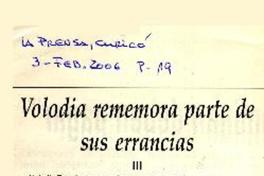 LA PRENSA, CURICÓ
3-FEB.2006 P-19
Volodia rememora parte de
sus errancias
III